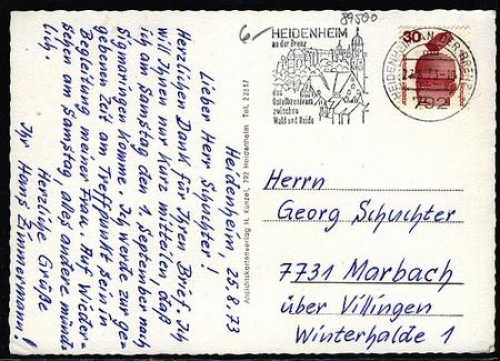 6,-
89500
HEIDENHEIM
an der Brenz
das
Einkaufszentrum
zwischen
Wald und Heide
30
HEIDENHEIM AN DER BRENZ
792
Ansichtskartenverlag H. Kunzel, 792 Heidenheim Tel. 22557
Heidenheim, 25.8.73
Lieber Herr Schuchter!
Herzlichen Dank für Ihren Brief. Ich
will Ihnen nur kurz mitteilen, daß
ich am Samstag den 1. September nach
Sigmaringen komme. Ich werde zur ge-
gebenen Zeit am Treffpunkt sein in
Begleitung meiner Frau. Auf Wieder-
sehen am Samstag, alles andere münd-
lich.
Herzliche Grüße
Ihr Hans Zimmermann!
Herrn
Georg Schuchter
7731 Marbach
über Villingen
Winterhalde 1